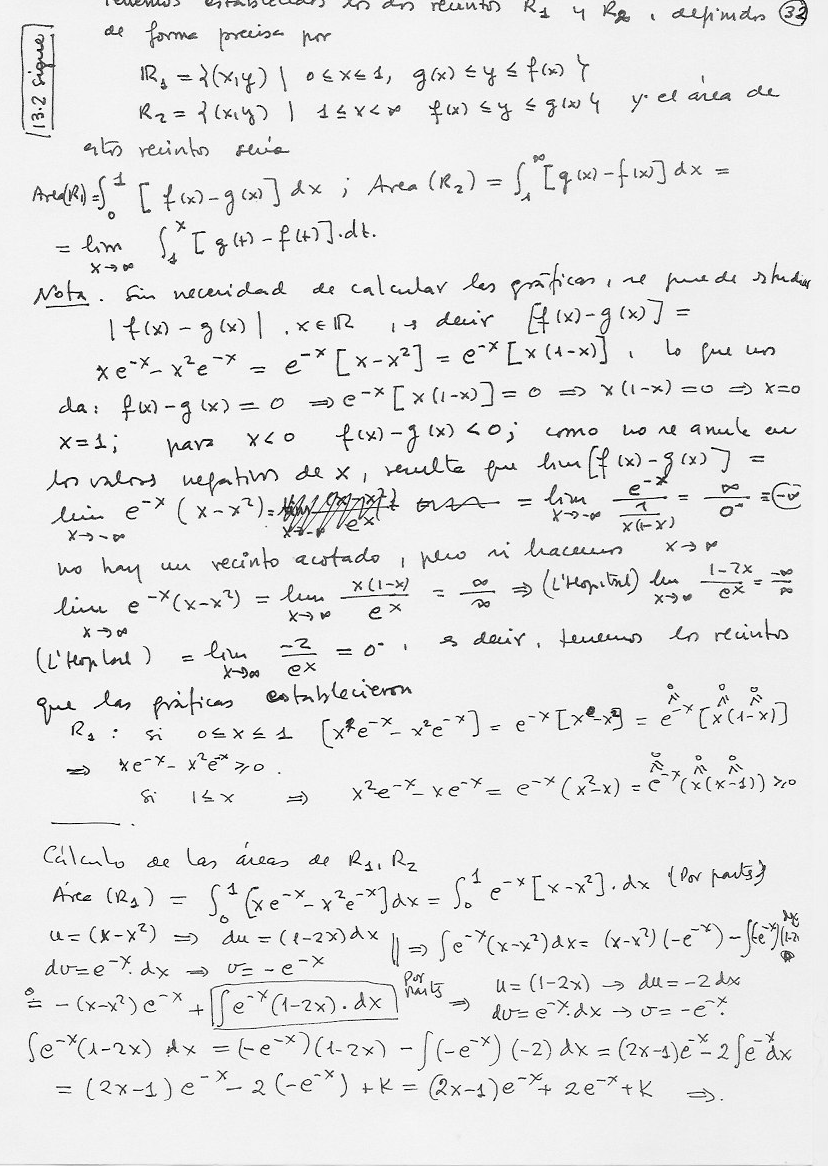 Tenemos establecidos los dos recintos R₁ y R₂, definidos 32
13.2 Sigue
de forma precisa por
R₁ = {(x,y) | 0≤x≤1, g(x) ≤ y ≤ f(x)}
R₂ = {(x,y) | 1≤x<∞ f(x) ≤ y ≤ g(x)} y el área de
estos recintos sería
Area(R₁) = ∫₀¹ [f(x)-g(x)] dx ; Area (R₂) = ∫₁^∞ [g(x)-f(x)] dx =
= lim_{x→∞} ∫₁ˣ [g(t) - f(t)].dt.
Nota. Sin necesidad de calcular las gráficas, se puede estudiar
|f(x) - g(x)| . x∈ℝ , es decir [f(x)-g(x)] =
xe⁻ˣ - x²e⁻ˣ = e⁻ˣ [x-x²] = e⁻ˣ [x(1-x)] , lo que nos
da: f(x)-g(x) = 0 ⇒ e⁻ˣ [x(1-x)] = 0 ⇒ x(1-x) = 0 ⇒ x=0
x=1; para x<0 f(x)-g(x) < 0; como no se anula en
los valores negativos de x, resulta que lim [f(x)-g(x)] =
lim_{x→-∞} e⁻ˣ (x-x²) = = lim_{x→-∞} e⁻ˣ / (1/(x(1-x))) = ∞/0⁻ = -∞
no hay un recinto acotado, pero si hacemos x→∞
lim_{x→∞} e⁻ˣ(x-x²) = lim_{x→∞} x(1-x)/eˣ = ∞/∞ ⇒ (L'Hopital) lim_{x→∞} (1-2x)/eˣ = -∞/∞
(L'Hopital) = lim_{x→∞} -2/eˣ = 0⁻ , es decir, tenemos los recintos
que las gráficas establecieron
R₁ : si 0≤x≤1 [x e⁻ˣ - x²e⁻ˣ] = e⁻ˣ [x-x²] = e⁻ˣ [x(1-x)]
⇒ xe⁻ˣ - x²e⁻ˣ ≥ 0.
Si 1≤x ⇒ x²e⁻ˣ - xe⁻ˣ = e⁻ˣ (x²-x) = e⁻ˣ (x(x-1)) ≥ 0
Cálculo de las áreas de R₁, R₂
Área (R₁) = ∫₀¹ [xe⁻ˣ - x²e⁻ˣ] dx = ∫₀¹ e⁻ˣ [x-x²].dx (Por partes)
u = (x-x²) ⇒ du = (1-2x)dx || ⇒ ∫e⁻ˣ(x-x²)dx = (x-x²)(-e⁻ˣ) - ∫(-e⁻ˣ)(1-2x)
dv = e⁻ˣ.dx → v = -e⁻ˣ
= -(x-x²)e⁻ˣ + ∫e⁻ˣ(1-2x).dx Por partes ⇒ u = (1-2x) → du = -2dx
dv = e⁻ˣ.dx → v = -e⁻ˣ.
∫e⁻ˣ(1-2x) dx = (-e⁻ˣ)(1-2x) - ∫(-e⁻ˣ)(-2) dx = (2x-1)e⁻ˣ - 2∫e⁻ˣdx
= (2x-1)e⁻ˣ - 2(-e⁻ˣ) + K = (2x-1)e⁻ˣ + 2e⁻ˣ + K ⇒.